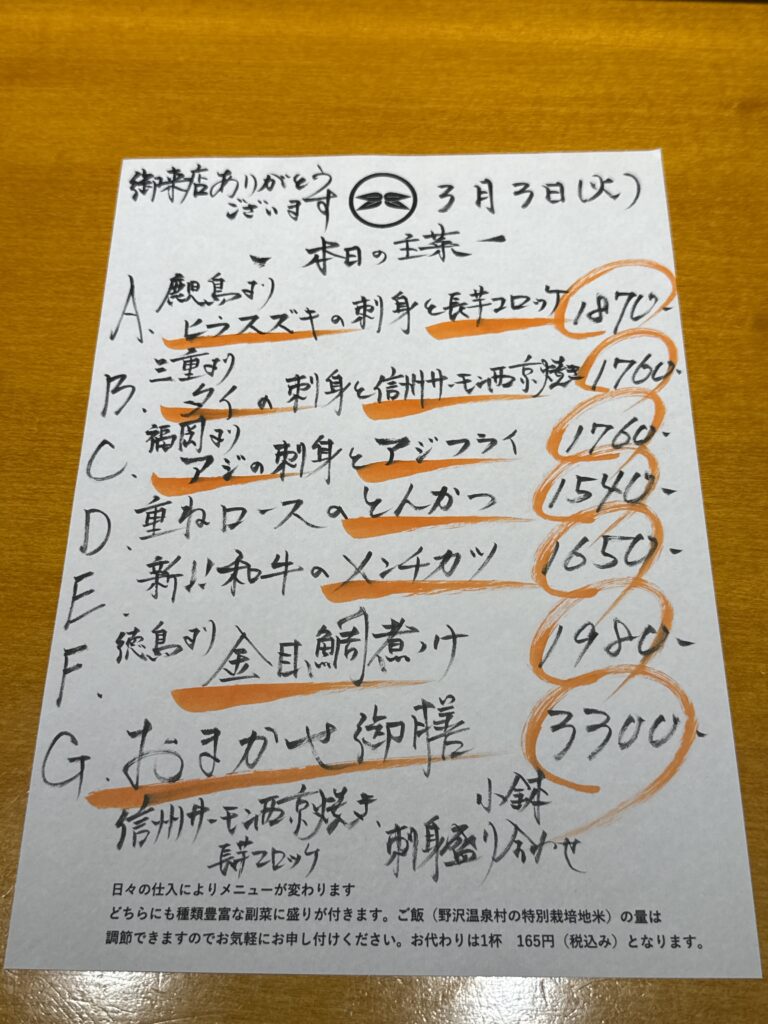 御来店ありがとう
ございます
3月3日(火)
本日の主菜
鹿児島より
A. ヒラスズキの刺身と長芋コロッケ 1870-
三重より
B. タイの刺身と信州サーモン西京焼き 1760-
福岡より
C. アジの刺身とアジフライ 1760-
D. 重ねロースのとんかつ 1540-
E. 新!!和牛のメンチカツ 1650-
徳島より
F. 金目鯛煮つけ 1980-
G. おまかせ御膳 3300-
信州サーモン西京焼き、小鉢
長芋コロッケ 刺身盛り合わせ
日々の仕入によりメニューが変わります
どちらにも種類豊富な副菜に盛りが付きます。ご飯（野沢温泉村の特別栽培地米）の量は
調節できますのでお気軽にお申し付けください。お代わりは1杯　165円（税込み）となります。